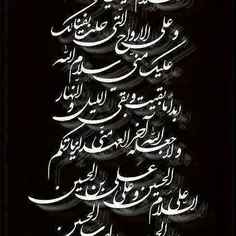 وعلی الارواح التی حلت بفنائک
علیک منی سلام الله
ابدا ما بقیت و بقی اللیل و النهار
ولا جعله الله آخر العهد منی لزیارتکم
السلام علی الحسین و علی علی بن الحسین